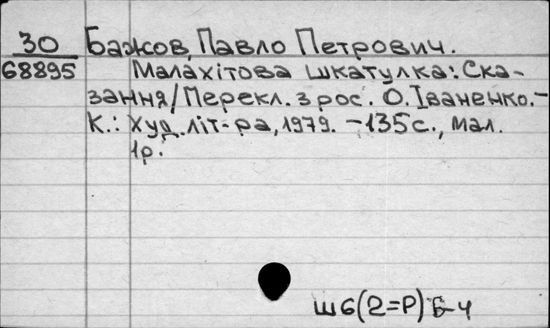 30 Бажов, Павло Петрович.
68895 Малахітова шкатулка: Ска-
зання/Перекл. з рос. О. Іваненко.-
К.: Худ. літ-ра, 1979. -135с., мал.
1р.
Ш6(2=Р)Б-4